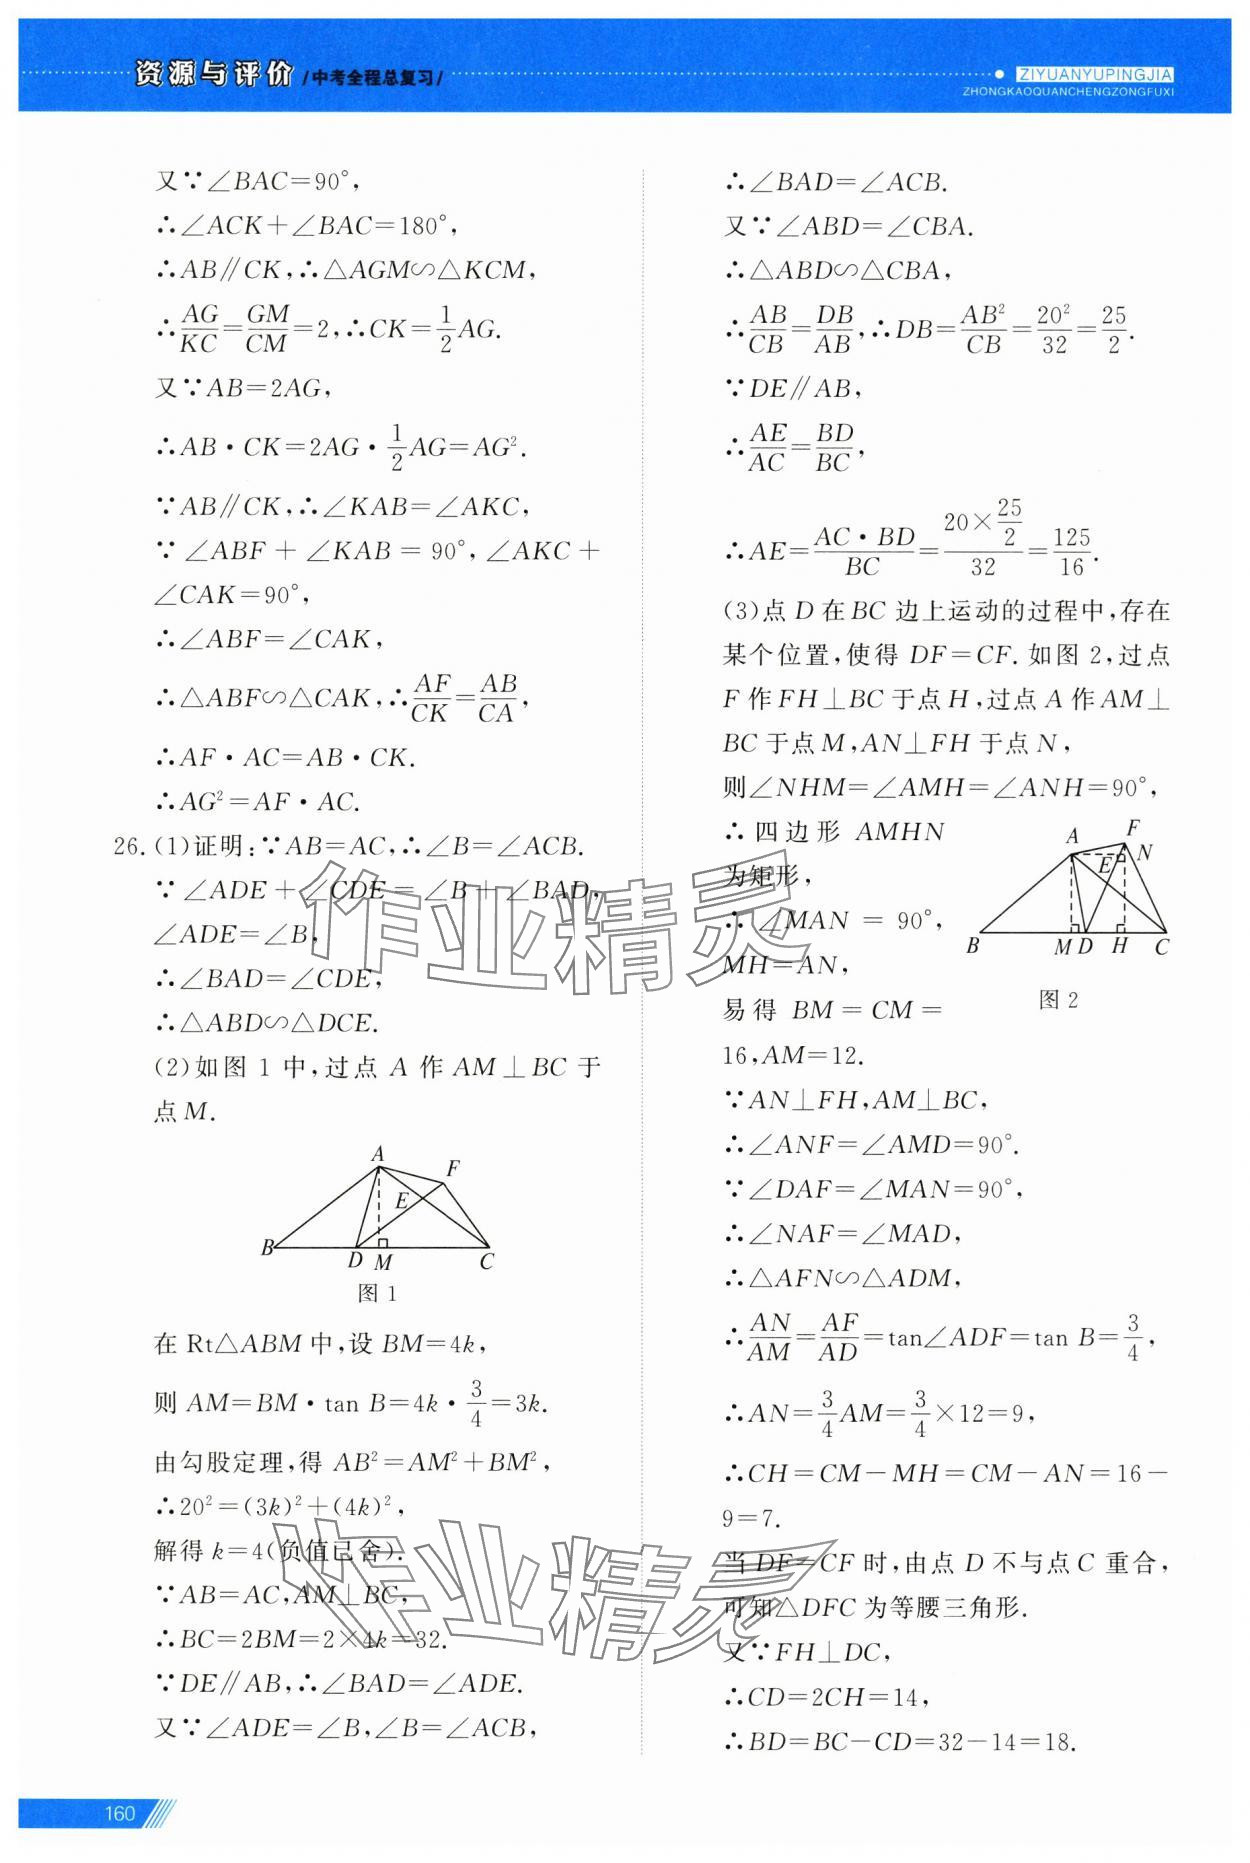 资源与评价 /中考全程总复习/
ZIYUANYUPINGJIA
ZHONGKAOQUANCHENGZONGFUXI
又∵∠BAC=90°,
∴∠ACK+∠BAC=180°,
∴AB∥CK,∴△AGM∽△KCM,
∴AG/KC=GM/CM=2,∴CK=1/2AG.
又∵AB=2AG,
∴AB·CK=2AG·1/2AG=AG².
∵AB∥CK,∴∠KAB=∠AKC,
∵∠ABF+∠KAB=90°,∠AKC+
∠CAK=90°,
∴∠ABF=∠CAK,
∴△ABF∽△CAK,∴AF/CK=AB/CA,
∴AF·AC=AB·CK.
∴AG²=AF·AC.
26.(1)证明:∵AB=AC,∴∠B=∠ACB.
∵∠ADE+∠CDE=∠B+∠BAD,
∠ADE=∠B,
∴∠BAD=∠CDE,
∴△ABD∽△DCE.
(2)如图1中,过点A作AM⊥BC于
点M.
A
F
E
B
D
M
C
图1
在Rt△ABM中,设BM=4k,
则AM=BM·tan B=4k·3/4=3k.
由勾股定理,得AB²=AM²+BM²,
∴20²=(3k)²+(4k)²,
解得k=4(负值已舍).
∵AB=AC,AM⊥BC,
∴BC=2BM=2×4k=32.
∵DE∥AB,∴∠BAD=∠ADE.
又∵∠ADE=∠B,∠B=∠ACB,
∴∠BAD=∠ACB.
又∵∠ABD=∠CBA.
∴△ABD∽△CBA,
∴AB/CB=DB/AB,∴DB=AB²/CB=20²/32=25/2.
∵DE∥AB,
∴AE/AC=BD/BC,
∴AE=AC·BD/BC=20×25/2/32=125/16.
(3)点D在BC边上运动的过程中,存在
某个位置,使得DF=CF.如图2,过点
F作FH⊥BC于点H,过点A作AM⊥
BC于点M,AN⊥FH于点N,
则∠NHM=∠AMH=∠ANH=90°,
∴四边形AMHN
为矩形,
∴∠MAN=90°,
MH=AN,
易得BM=CM=
A
F
E
N
B
M
D
H
C
图2
16,AM=12.
∵AN⊥FH,AM⊥BC,
∴∠ANF=∠AMD=90°.
∵∠DAF=∠MAN=90°,
∴∠NAF=∠MAD,
∴△AFN∽△ADM,
∴AN/AM=AF/AD=tan∠ADF=tan B=3/4,
∴AN=3/4AM=3/4×12=9,
∴CH=CM-MH=CM-AN=16-
9=7.
当DF=CF时,由点D不与点C重合,
可知△DFC为等腰三角形.
又∵FH⊥DC,
∴CD=2CH=14,
∴BD=BC-CD=32-14=18.
作业精灵
作业精灵
160